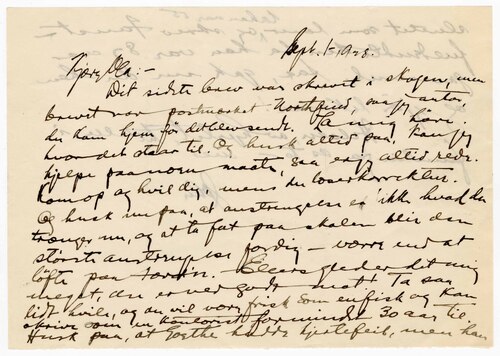 Sept. 1- 1928.
Kjære Ola:-
Dit sidste brev var skrevet i skogen, men
brevet var postmerket Northfield, saa jeg antar,
du kan hjem før det blev sendt. La mig høre
hvordan det staar til. Og husk altid paa, kan jeg
hjelpe paa nogen maate, saa er jeg altid rede.
Kom op og hvil dig, mens du leser korrektur.
Og husk nu paa, at anstrengelse er ikke hvad du
trænger nu, og at ta fat paa skolen blir den
største anstrengelse for dig – værre end at
løfte paa tørven. – Ellers glæder det mig
meget, du er ved godt mot! Ta saa
lidt hvile, og du vil være frisk som en fisk og kan
skrive som en kontorist for mindst 30 aar til.
Husk paa, at Goethe hadde hjertefeil, men han